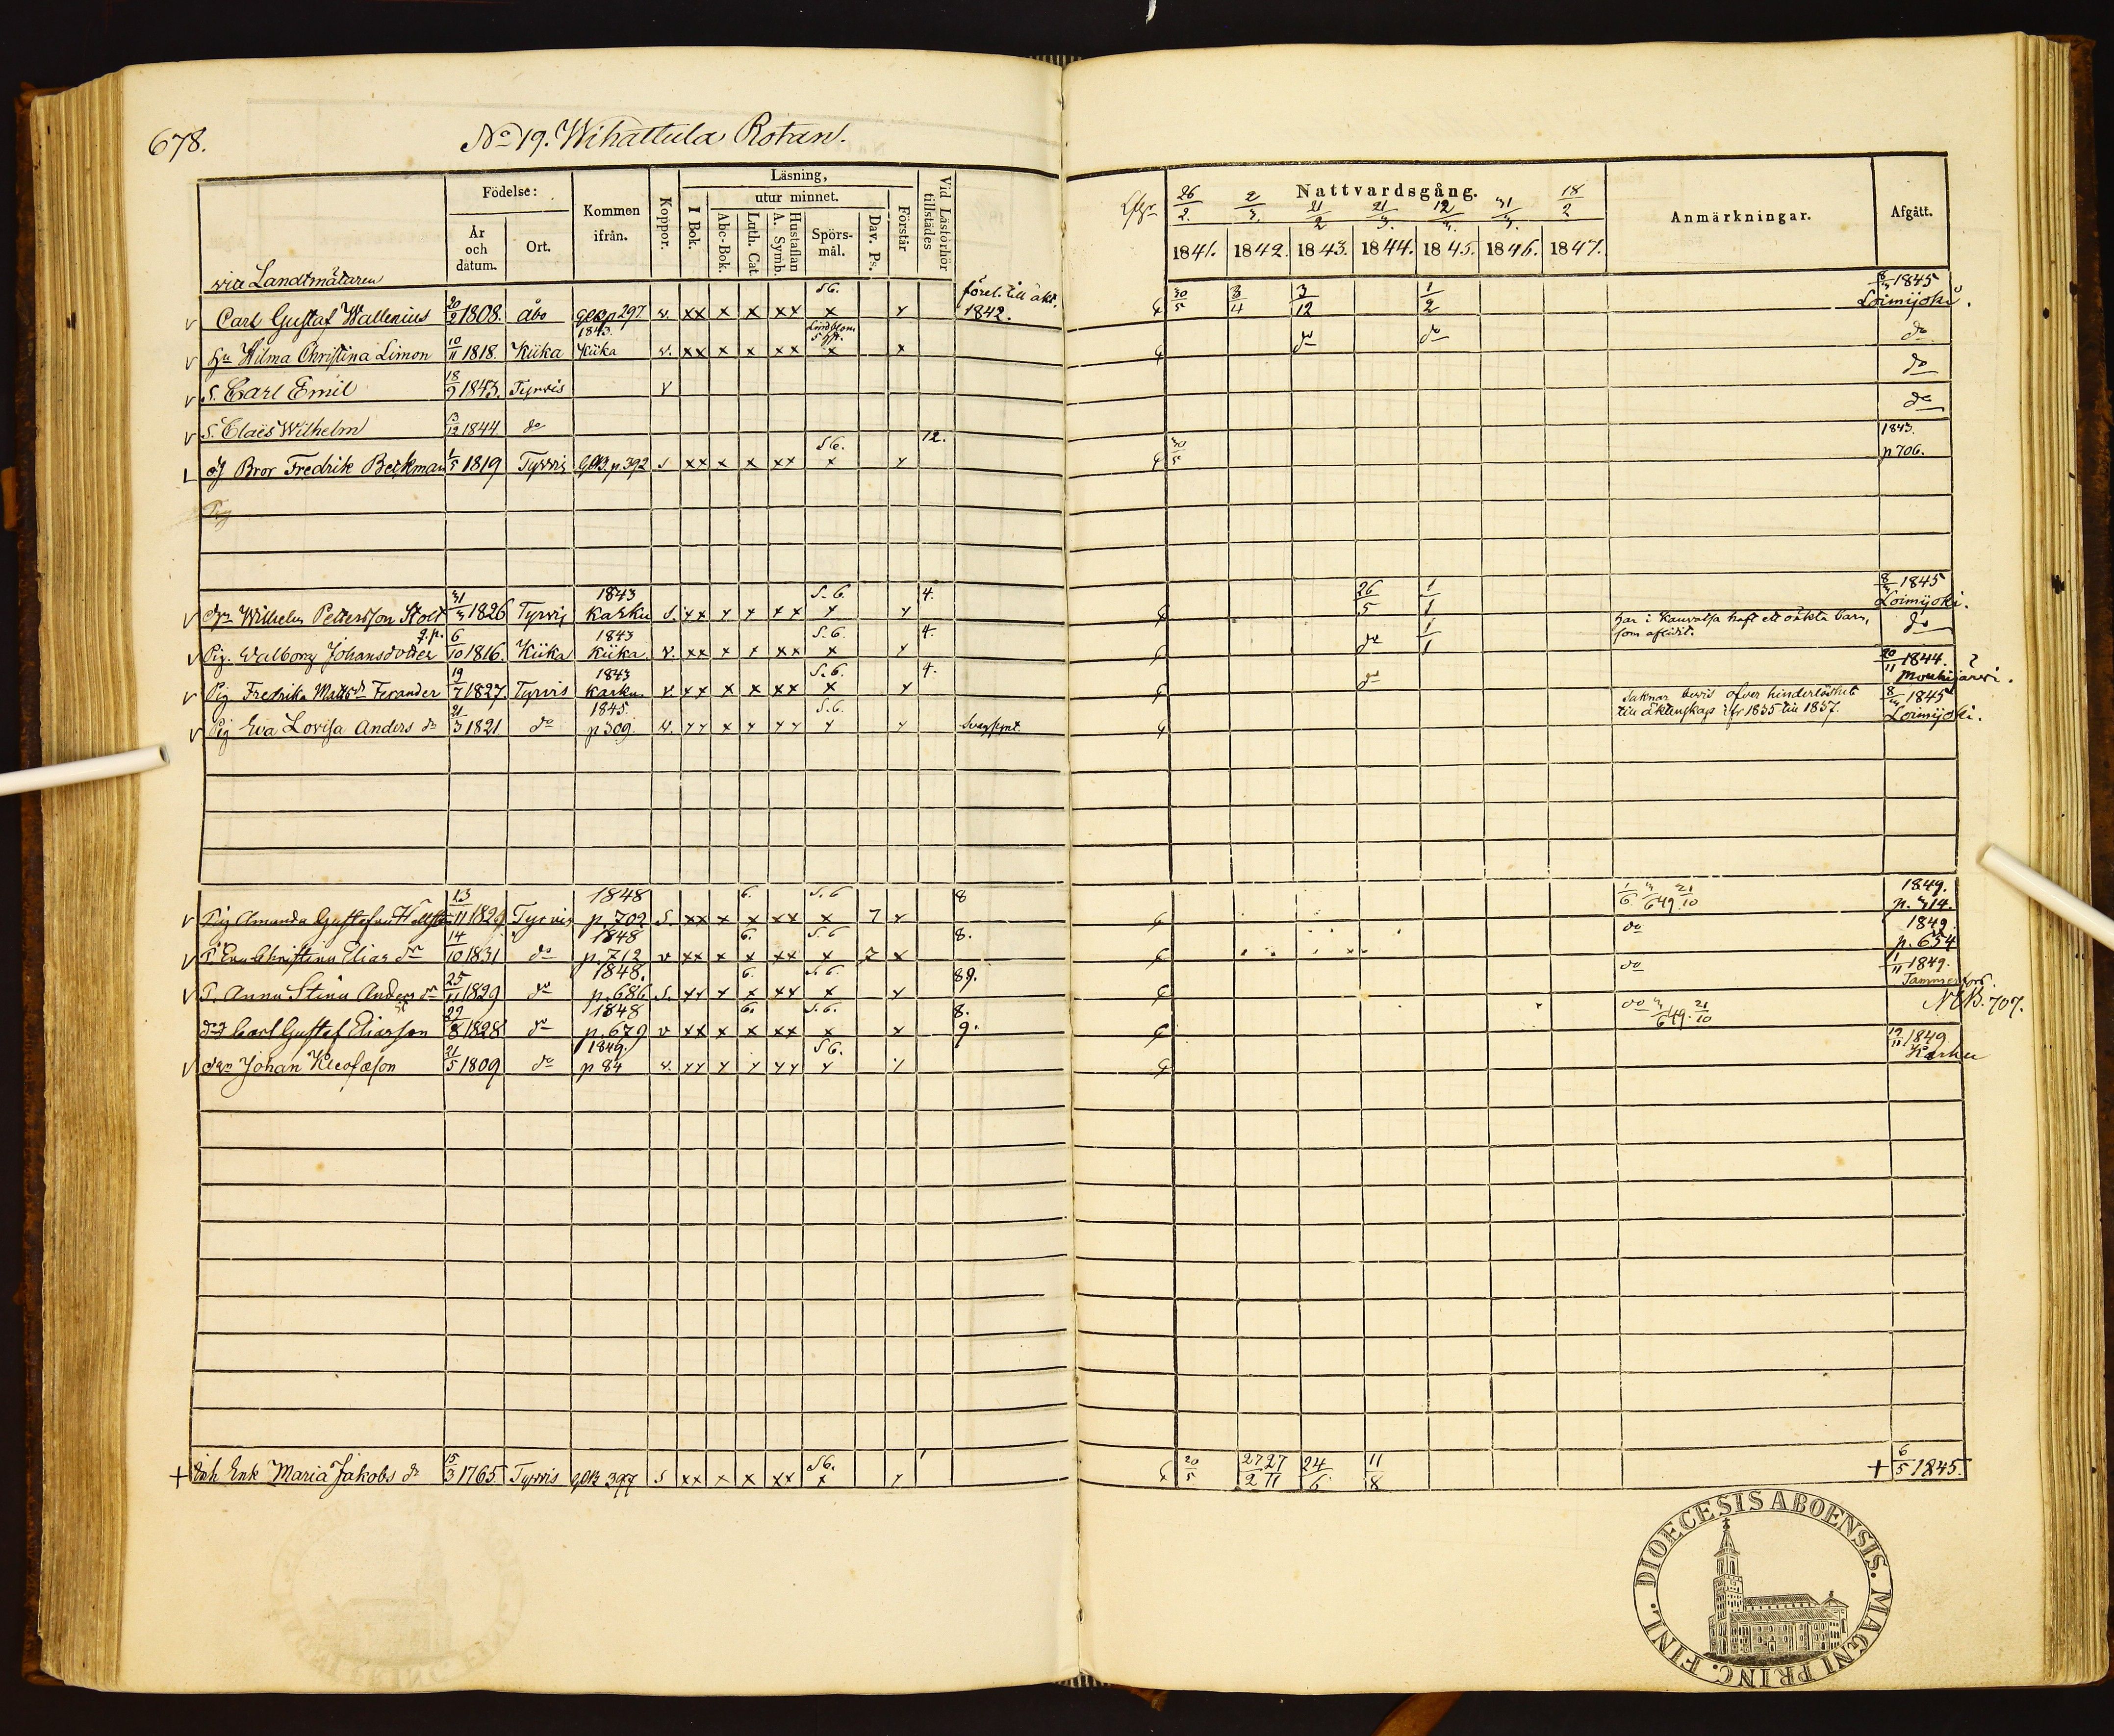 678.
No 19. Wihattula Rotan.
Födelse:
År och datum.
Ort.
Kommen ifrån.
Koppor.
Läsning,
I Bok.
utur minnet.
Abc-Bok.
Luth. Cat.
Hustaflan A. Symb.
Spörs-mål.
Dav. Ps.
Förstår
Vid Läsförhör tillstädes
Nattvardsgång.
26/2. 2/3. 21/2 21/3. 12/3. 31/3. 18/2
1841. 1842. 1843. 1844. 1845. 1846. 1847.
Anmärkningar.
Afgått.
vice Landtmätaren
v Carl Gustaf Wallenius 20/2 1808. Åbo p 297 v. xx x x xx S6. x x förel. till äkt. 1842. 30/5 3/4 3/12 1/2 1845 Loimijoki.
v Hu Hilma Christina Limon 10/11 1818. Kiika 1843. Kiika v. xx x x xx x x do do do
v S. Carl Emil 18/9 1843. Tyrvis v do
v S. Claës Wilhelm 12 1844. do do
Bror Fredrik Beckman 1/5 1819 Tyrvis p 392 s xx x x xx S6. x x 12. 30/5 1843. p 706.
Pig
v Wilhelm Pettersson Stolt 31/3 1826 Tyrvis 1843 Karku S. xx x x xx S.6. x x 4. 26/5 1/1 8/3 1845 Loimijoki.
v Pig. Walborg Johansdotter 6/10 1816. Kiika 1843 Kiika v. xx x x xx S.6. x x 4. do 1/1 har i Kauvatsa haft ett oäkta barn, som aflidit. do
v Pig Fredrika Matts dr Ferander 19/7 1827. Tyrvis 1843 Karku v xx x x xx S.6. x x 4. do 20/11 1844. Mouhijärvi.
v Pig Eva Lovisa Anders dr 21/3 1821. do 1845. p 309. v. xx x x xx S.6. x x Svagsynt. saknar bevis öfver hinderlöshet till äktenskap ifr 1835 till 1837. 8/3 1845 Loimijoki.
v Pig Amanda Gustafva 13/11 1829 Tyrvis 1848 p. 702 S. xx x 6. x xx S.6 x 7 x 8 1/6 49 21/10 1849. p. 314.
v P. Eva Christina Elias dr 14/10 1831 do 1848 p. 712 v xx x 6. x xx S.6 x 7 x 8. do 1849 p. 654
v P. Anna Stina Anders dr 25/11 1829 do 1848. p. 686 S. xx x 6. x xx S.6. x x 89. do 1/11 1849. Tammerfors.
Carl Gustaf Eliasson 29/8 1828 do 1848 p. 679 v xx x 6. x xx S.6. x x 8. 9. do 49. 21/10 NB. 707.
v Johan 21/5 1809 do 1849. p 84 v. xx x x xx S6. x x 19/11 1849 Karku
+ Inh Enk Maria Jakobs dr 15/3 1765. Tyrvis s xx x x xx S6. x x 1 20/5 27 27/2 11 24/6 11/8 + 6/5 1845.
DIOECESIS ABOENSIS. MAGNI PRINC. FINL.